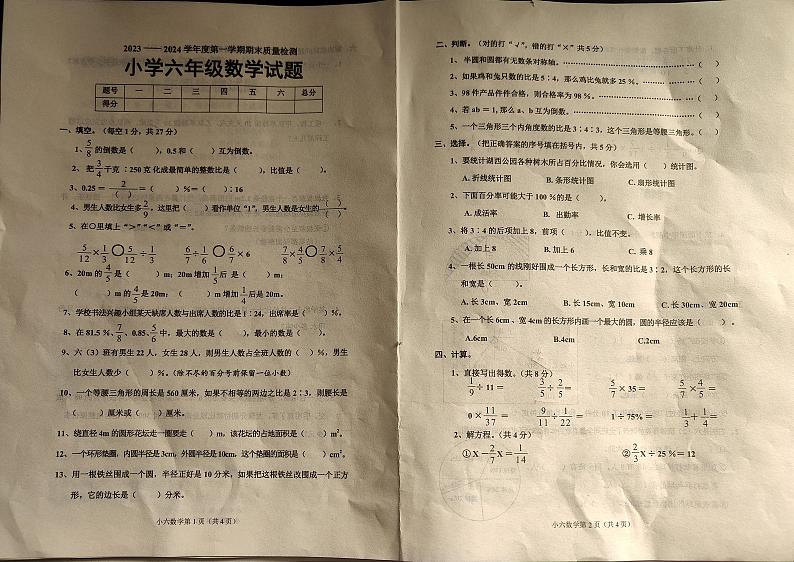 2023 —— 2024 学年度第一学期期末质量检测
小学六年级数学试题
题号 一 二 三 四 五 六 总分
得分
一、填空。（每空1分，共27分）
1、5/8 的倒数是（ ），0.5和（ ）互为倒数。
2、 把 3/4 千克 ∶250克 化成最简单的整数比是（ ），比值是（ ）。
3、0.25 = 2/( ) =（ ）%=（ ）∶16
4、男生人数比女生多 2/9，这里把（ ）看作单位“1”，男生人数是女生的 ( )/( )
5、在○里填上“>”“<”或“=”。
5/12 × 1/3 ○ 5/12 ÷ 1/3 6/7 ÷ 1/6 ○ 6/7 × 6 7/8 × 4/5 ○ 7/8 × 5/4
6、20m的 4/5 是（ ）m；20m增加 1/5 后 是（ ）m；
（ ）m的 4/5 是20m；（ ）m增加 1/4 后是20m。
7、学校书法兴趣小组某天缺席人数与出席人数的比是1∶24，出席率是（ ）。
8、在 81.5 %、7/8、0.85、5/6 中，最大的数是（ ），最小的数是（ ）。
9、六（3）班有男生 22 人，女生 28 人，则男生人数占全班人数的（ ）%，男生
比女生人数少（ ）%。（除不尽的百分号前保留一位小数）
10、一个等腰三角形的周长是 560 厘米，如果不相等的两边之比是 2∶3，则腰长是
（ ）厘米或（ ）厘米。
11、绕直径 4m 的圆形花坛走一圈要走（ ）m，该花坛的占地面积是（ ）m²。
12、一个环形垫圈，内圆半径是3cm，外圆半径是10cm，这个垫圈的面积是（ ）cm²。
13、用一根铁丝围成一个圆，半径正好是 10 分米，如果把这根铁丝改围成一个正方
形，它的边长是（ ）分米。
小六数学第 1 页（共 4 页）
二、判断。（对的打“√”，错的打“×”共 5 分）
1、 半圆和圆都有无数条对称轴。…………………………………（ ）
2、如果鸡和兔只数的比是 5∶4，那么鸡比兔就多 25 %。…………（ ）
3、98 件产品件件合格，则合格率为 98 %。…………………………（ ）
4、若 ab = 1, 那么 a、b 互为倒数。…………………………………（ ）
5、一个三角形三个内角度数的比是 3∶4∶3，这个三角形是等腰三角形。（ ）
三、选择。（把正确答案的序号填在括号内，共 5 分）
1、要统计湖西公园各种树木所占百分比情况，你会选用（ ）统计图。
A. 折线统计图 B. 条形统计图 C. 扇形统计图
2、下面百分率可能大于 100 %的是（ ）。
A. 成活率 B. 出勤率 C. 增长率
3、将 3∶4 的后项加上 8，前项（ ），比值不变。
A. 加上 8 B. 加上 6 C. 乘 8
4、一根长 50cm 的线刚好围成一个长方形，长和宽的比是 3∶2，这个长方形的长
和宽是（ ）。
A. 长 3cm、宽 2cm B. 长 15cm、宽 10cm C. 长 30cm、宽 20cm
5、在一个长 6cm 、宽 4cm 的长方形内画一个最大的圆，圆的半径应该是（ ）。
A.6cm B.4cm C.2cm
四、计算。
1、直接写出得数。（共 8 分）
1/9 ÷ 11 = 3/5 ÷ 2/5 = 5/7 × 35 = 5/7 × 4/5 =
0 × 11/37 = 9/11 ÷ 1/22 = 1 ÷ 75% = 1/3 + 1/4 =
2、解方程。（共 4 分）
① X − 2/7 X = 1/14 ② 2/3 X ÷ 25 %= 12
小六数学第 2 页（共 4 页）